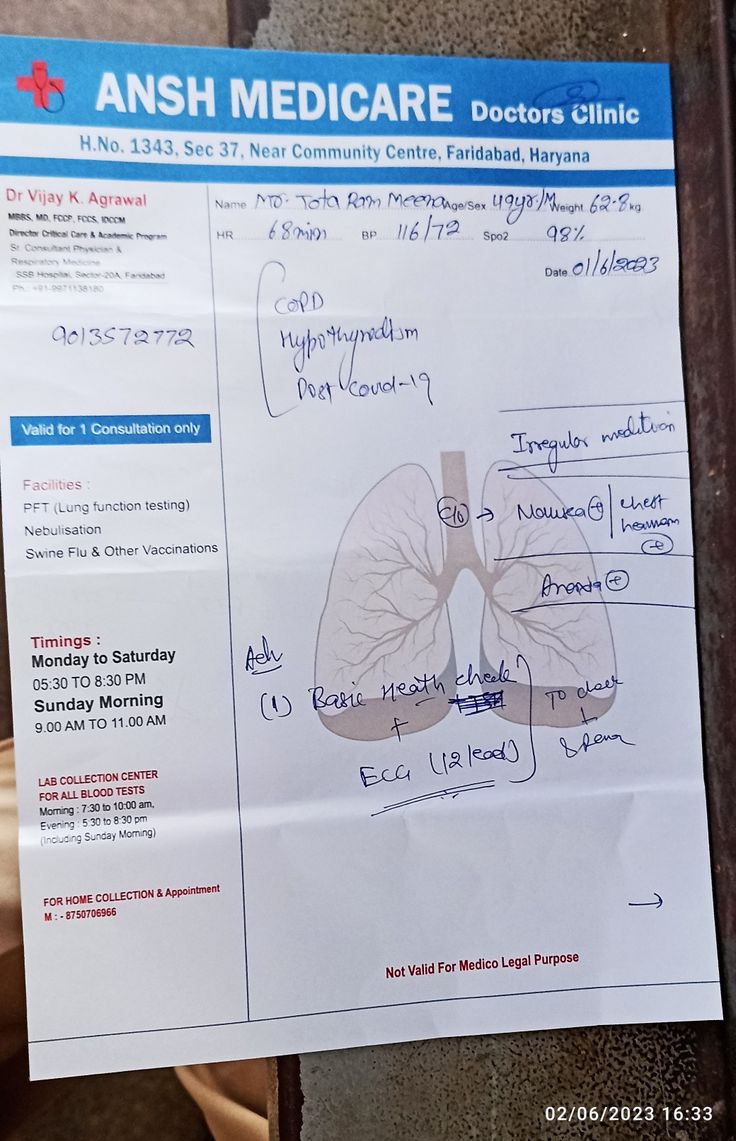 ANSH MEDICARE Doctors Clinic
H.No. 1343, Sec 37, Near Community Centre, Faridabad, Haryana
Dr Vijay K. Agrawal
MBBS, MD, FCCP, FCCS, IDCCM
Director Critical Care & Academic Program
Sr. Consultant Physician &
Respiratory Medicine
SSB Hospital, Sector-20A, Faridabad
Ph.: +91-9971138180
9013572772
Valid for 1 Consultation only
Facilities :
PFT (Lung function testing)
Nebulisation
Swine Flu & Other Vaccinations
Timings :
Monday to Saturday
05:30 TO 8:30 PM
Sunday Morning
9.00 AM TO 11.00 AM
LAB COLLECTION CENTER
FOR ALL BLOOD TESTS
Morning : 7:30 to 10:00 am,
Evening : 5:30 to 8:30 pm
(Including Sunday Morning)
FOR HOME COLLECTION & Appointment
M : - 8750706966
Name Mr. Tota Ram Meena Age/Sex 49yr/M Weight 62.8 kg
HR 68min BP 116/72 Spo2 98%
Date 01/6/2023
COPD
Hypothyrodism
Post Covid-19
Irregular
C/o → Nausea + chest
+
+
Adv
(1) Basic Heath check
+
ECG (12 lead)
To
+
→
Not Valid For Medico Legal Purpose
02/06/2023 16:33